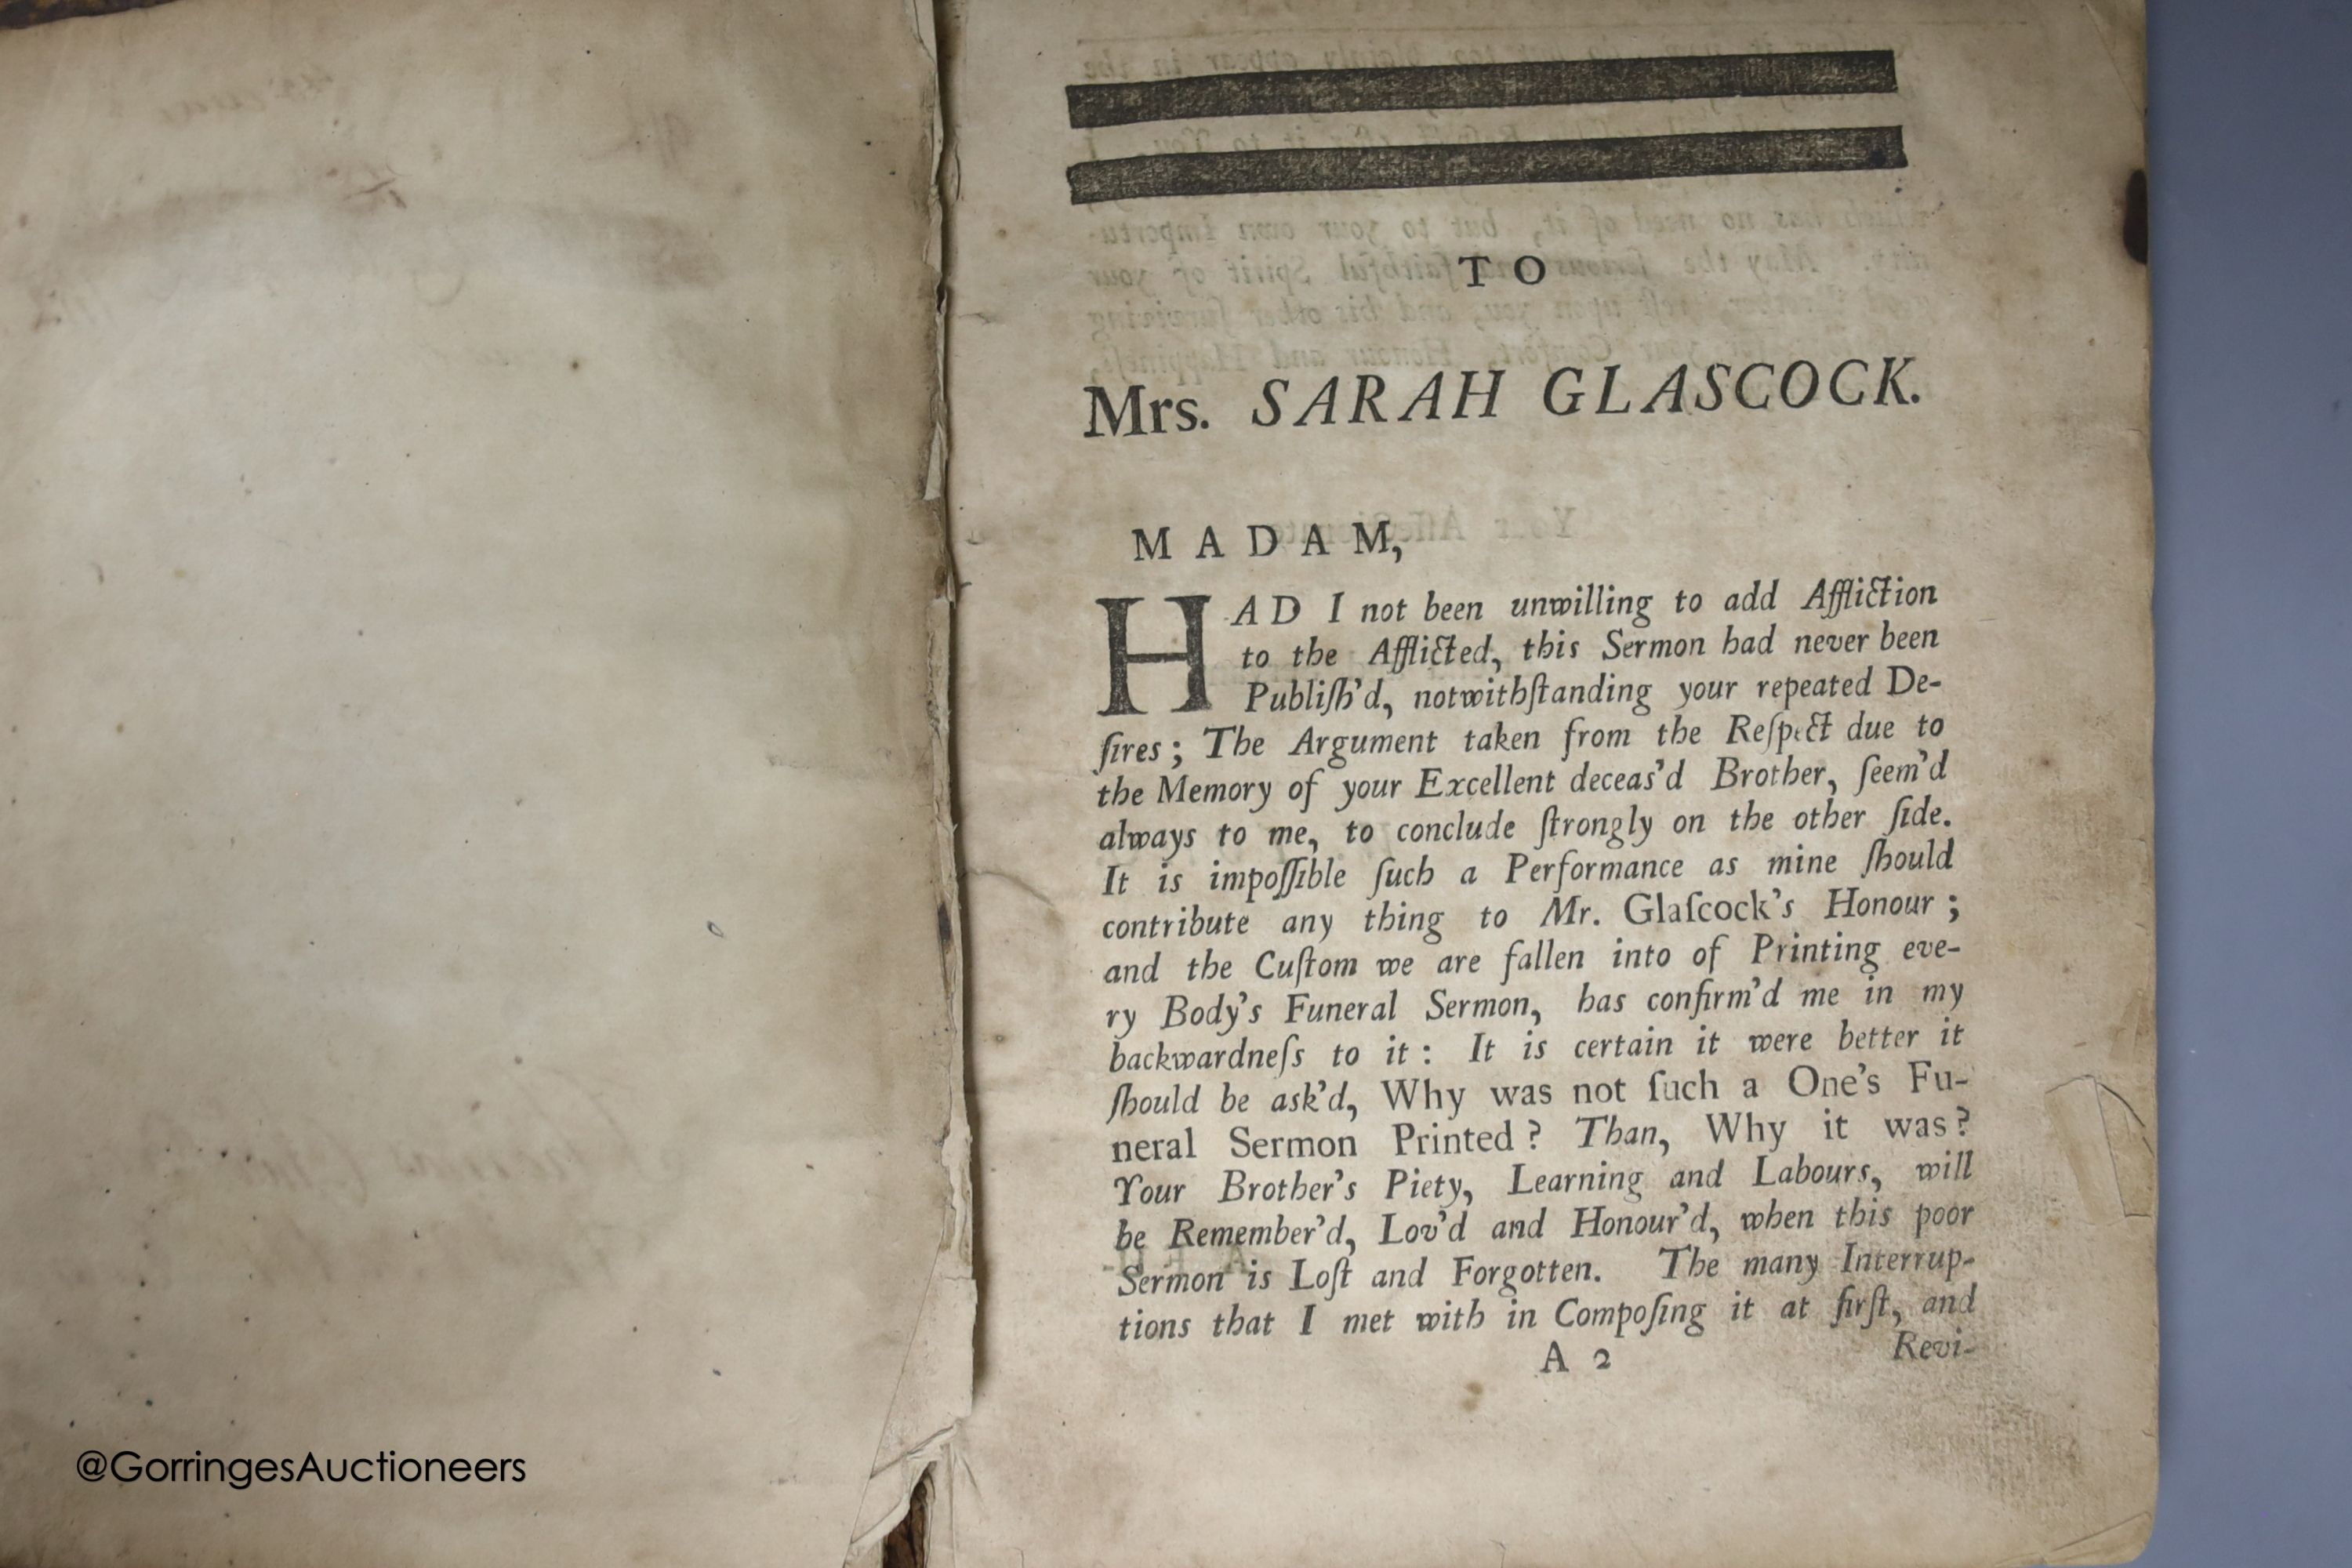 TO
Mrs. SARAH GLASCOCK.
MADAM,
HAD I not been unwilling to add Affliction
to the Afflicted, this Sermon had never been
Publiſh'd, notwithſtanding your repeated De-
ſires; The Argument taken from the Reſpect due to
the Memory of your Excellent deceas'd Brother, ſeem'd
always to me, to conclude ſtrongly on the other ſide.
It is impoſſible ſuch a Performance as mine ſhould
contribute any thing to Mr. Glaſcock's Honour;
and the Cuſtom we are fallen into of Printing eve-
ry Body's Funeral Sermon, has confirm'd me in my
backwardneſs to it: It is certain it were better it
ſhould be ask'd, Why was not ſuch a One's Fu-
neral Sermon Printed? Than, Why it was?
Your Brother's Piety, Learning and Labours, will
be Remember'd, Lov'd and Honour'd, when this poor
Sermon is Loſt and Forgotten. The many Interrup-
tions that I met with in Compoſing it at firſt, and
A 2
Revi-
@GorringesAuctioneers